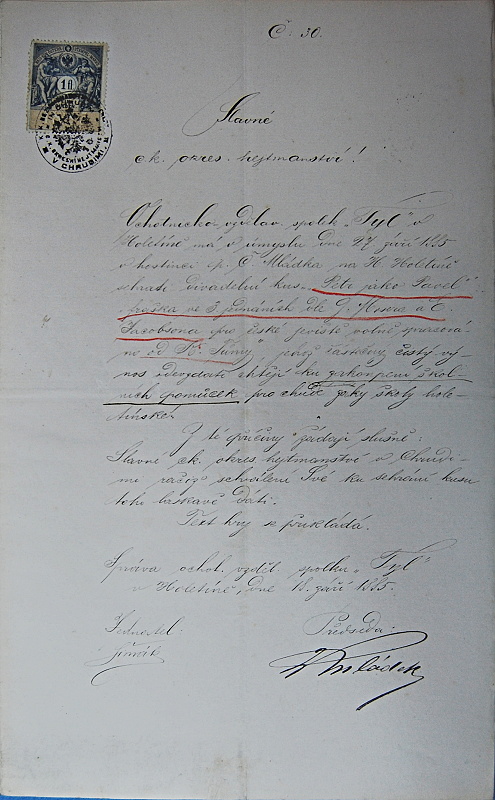 Č: 30.
1 fl
V CHRUDIMI
Slavné
ck. okres. hejtmanství!
Ochotnicko vzdělav. spolek „Tyl" v
Holetíně má v úmyslu dne 27 září 1895
v hostinci p. Č. Mládka na H. Holetíně
sehrati divadelní kus „Petr jako Pavel"
fraška ve 3 jednáních dle G. Mosra a E.
Jacobsona pro české jeviště volně spracová-
no od Fr. Šimy", jehož částečný čistý vý-
nos odevzdati chtějí ku zakoupení škol-
ních pomůcek pro chudé žáky školy hole-
tínské.
Z té příčiny žádají slušně:
Slavné ck. okres hejtmanství v Chrudi-
mi račiž schválení Své ku sehrání kusu
toho laskavě dáti.
Text hry se přikládá.
Správa ochot. vzděl. spolku „Tyl"
v Holetíně, dne 18. září 1895.
Jednatel Předseda:
Mládek